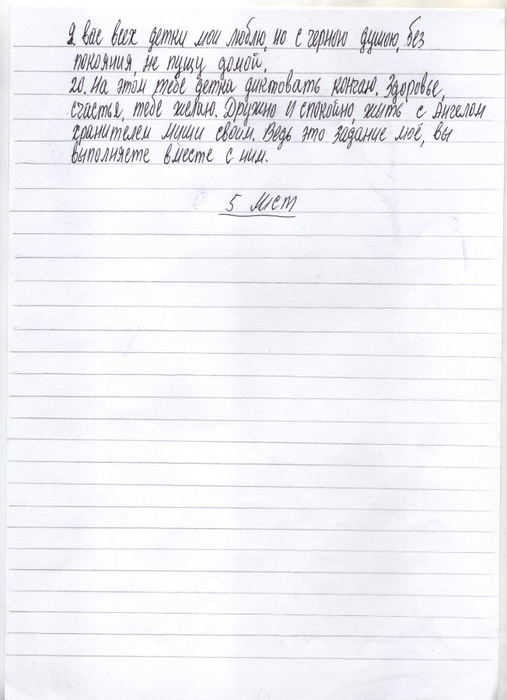 Я вас всех детки мои люблю, но с черною душою, без
покояния, не пущу домой.
20. На этом тебе детка диктовать кончаю. Здоровье,
счастья, тебе желаю. Дружно и спокойно, жить с Ангелом
хранителем миши своим. Ведь это задание моё, вы
выполняете вместе с ним.
5 лист